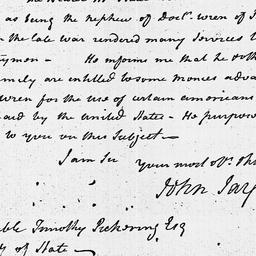 as being the nephew of Doctr. Wren of
in the late war rendered many Services
trymen — He informs me that he &
family are entitled to some Monies adva
wren for the use of certain americans
paid by the united States — He purpos
to you on this Subject —
I am Sir your most Obt.
John Jay
ble Timothy Pickering Esq
y of State —